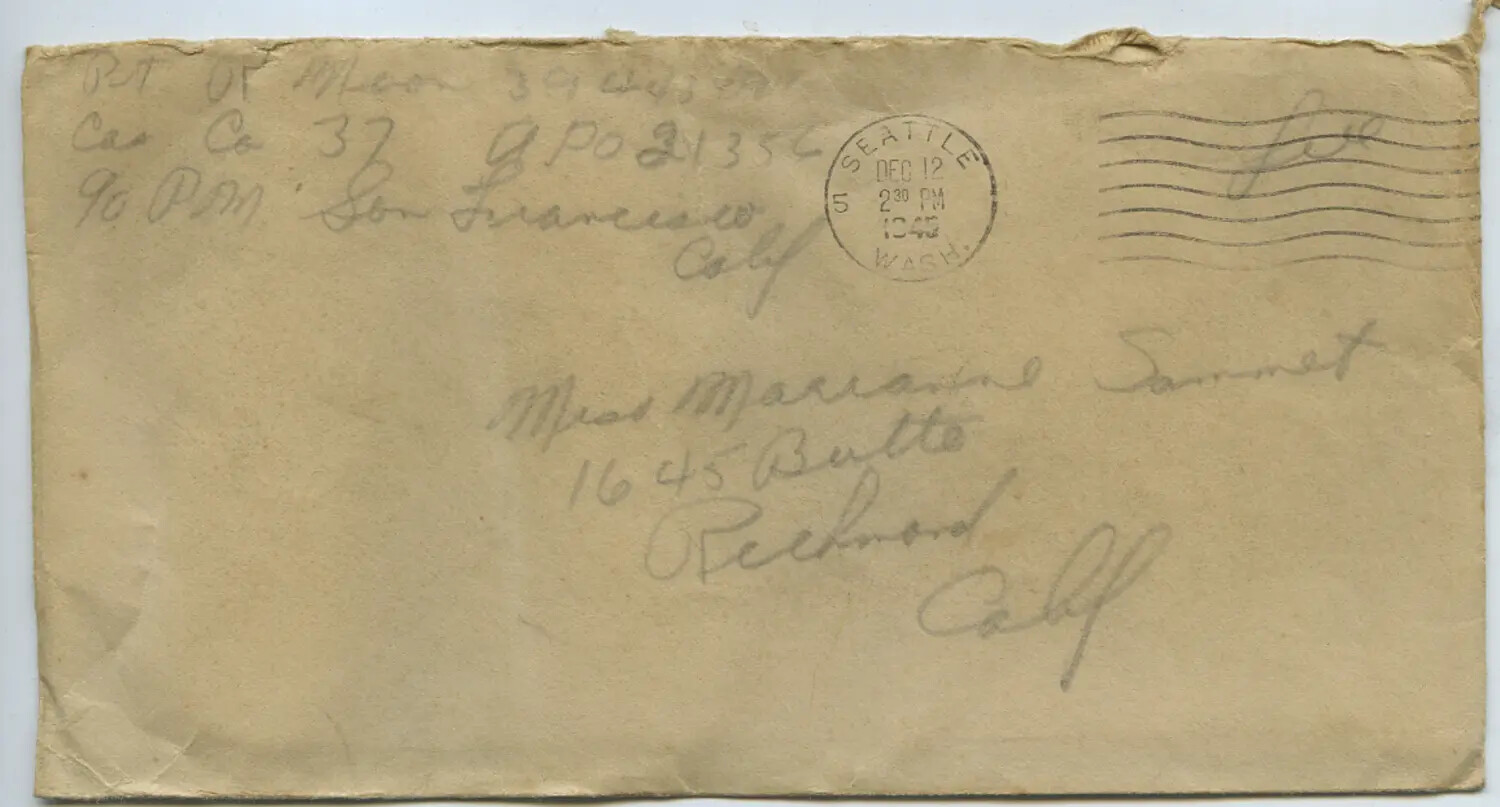 Pvt VR Moon
Cas Co 37 APO 21356
℅ P.M. San Francisco
Calif
SEATTLE
5
DEC 12
2 30 PM
1945
WASH.
Free
Miss Marianne Sammet
1645 Butte
Richmond
Calif